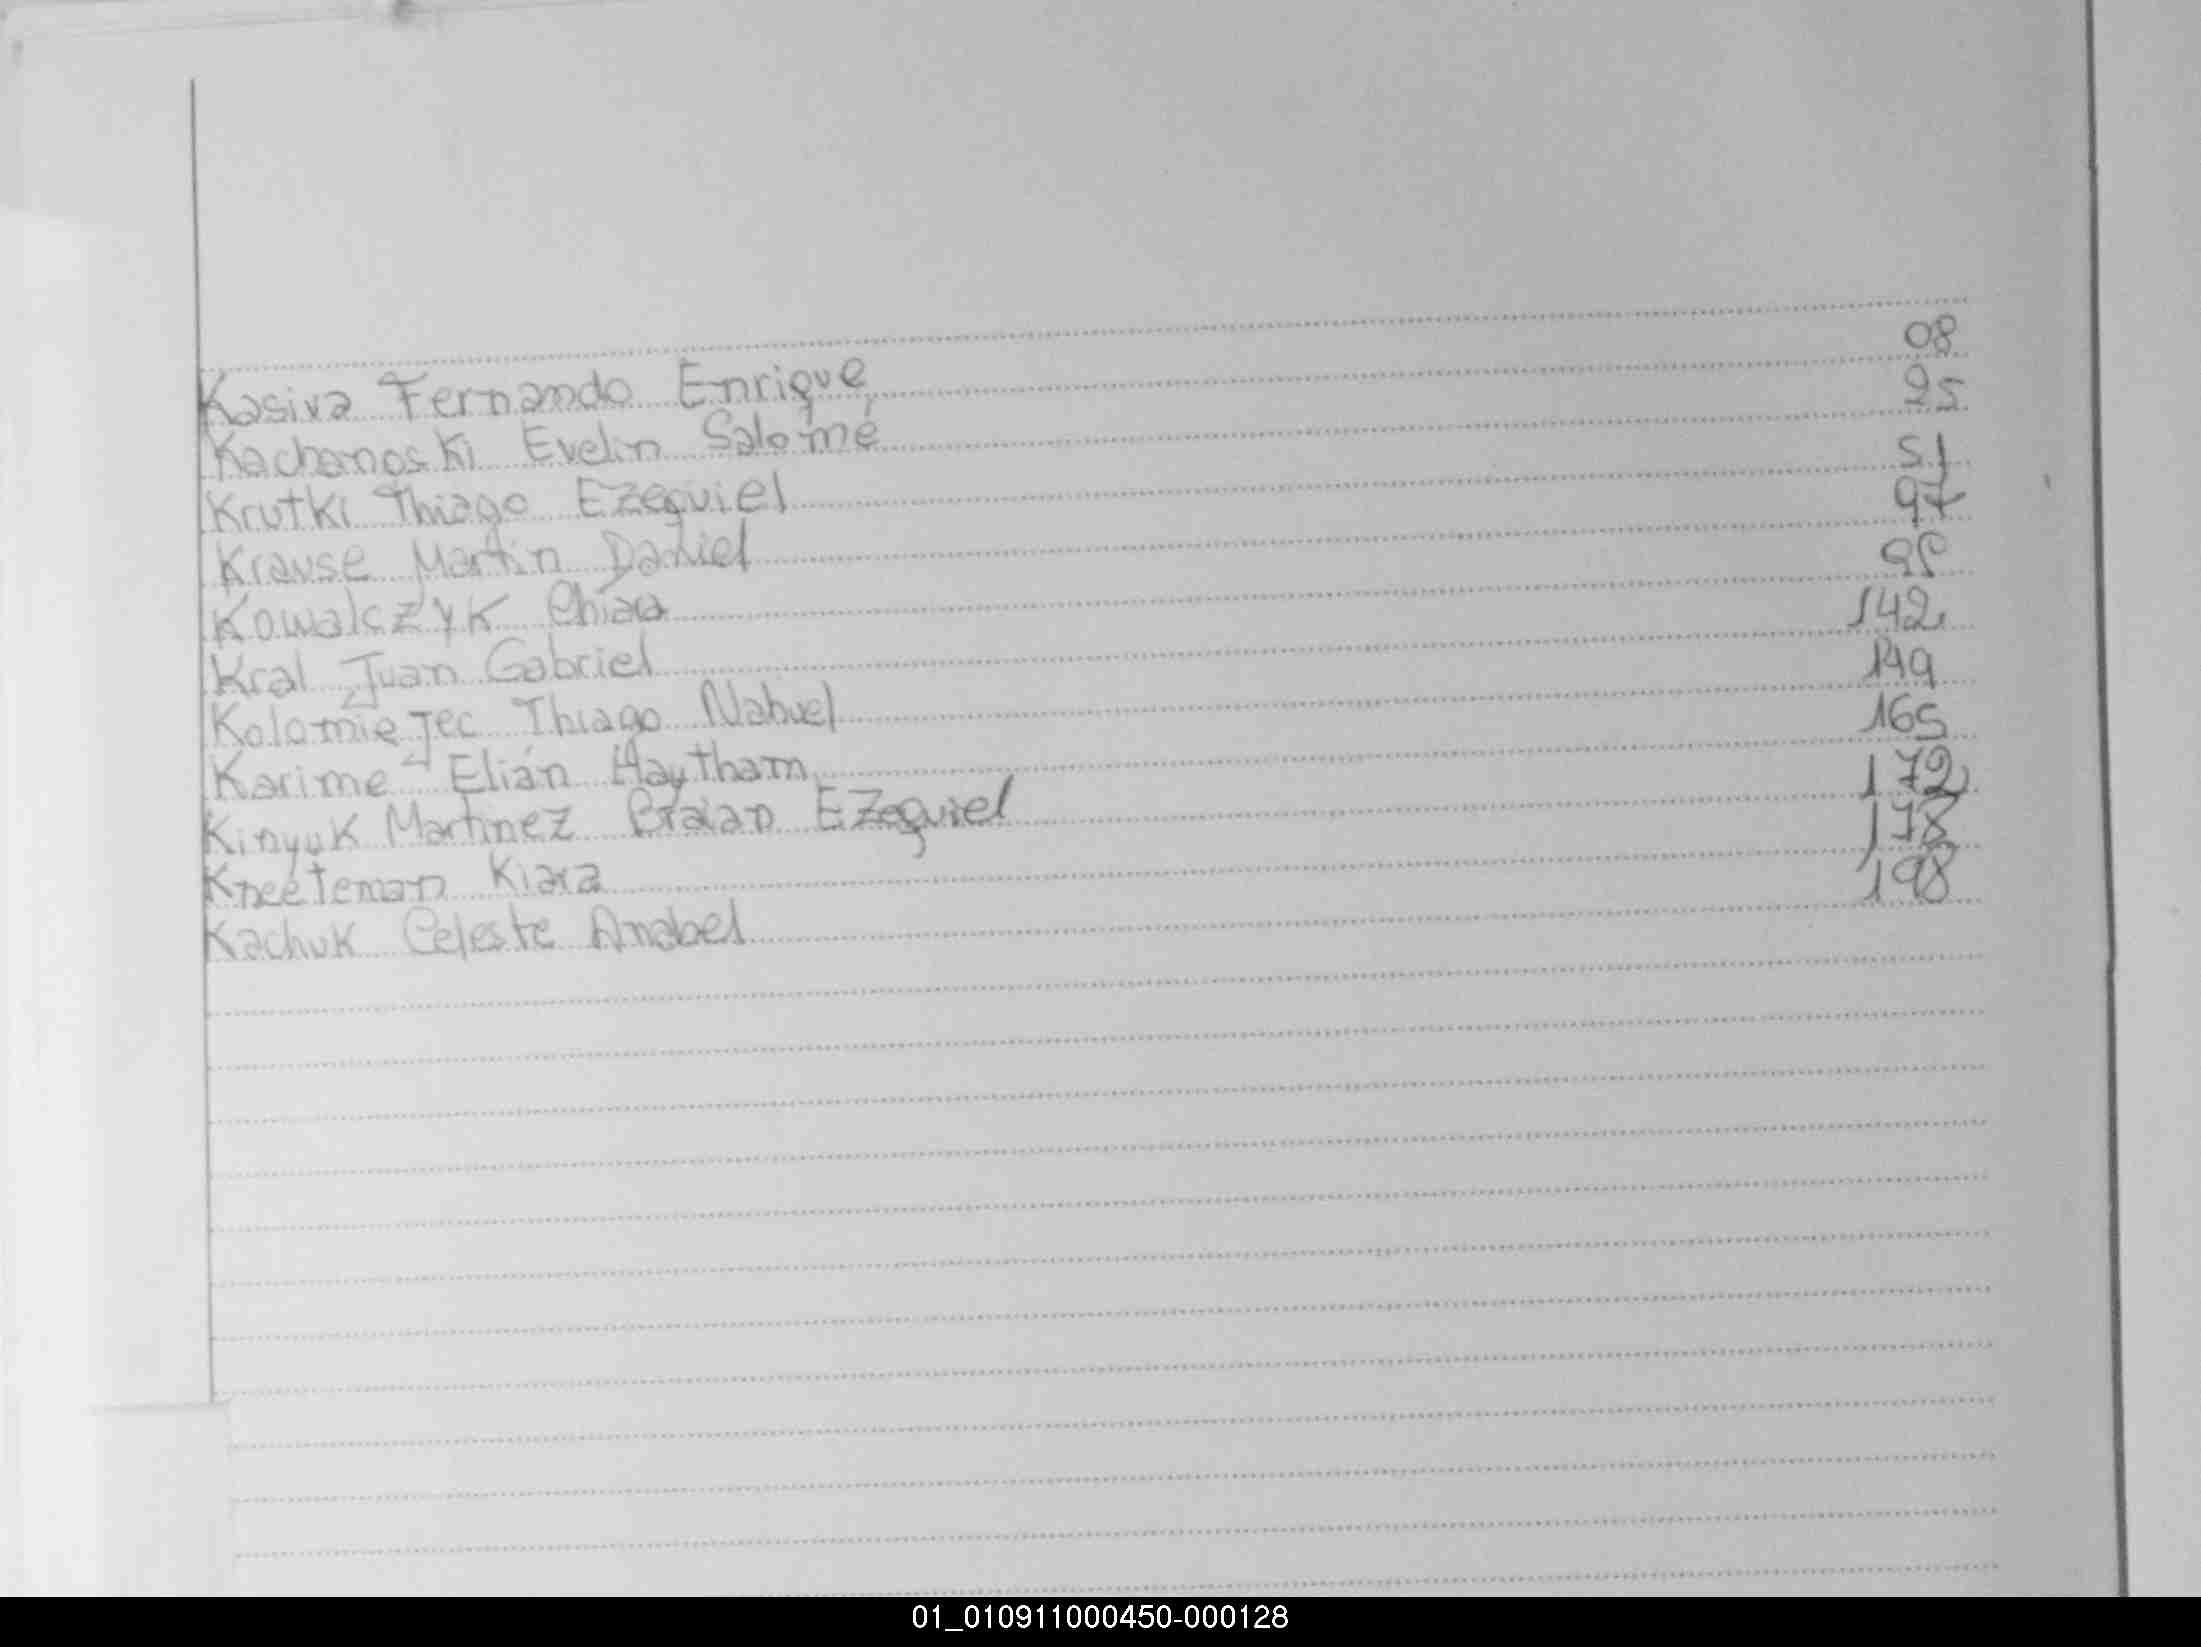 Kasiva Fernando Enrique 08
Kachanoski Evelin Salomé 25
Krutki Thiago Ezequiel 51
Krause Martin Daniel 97
Kowalczyk Chiara
Kral Juan Gabriel 142
Kolomiejec Thiago Nahuel 149
Karime Elián Haytham 165
Kinyuk Martinez Braian Ezequiel 172
Kneeteman Kiara 178
Kachuk Celeste Anabel 198
01_010911000450-000128